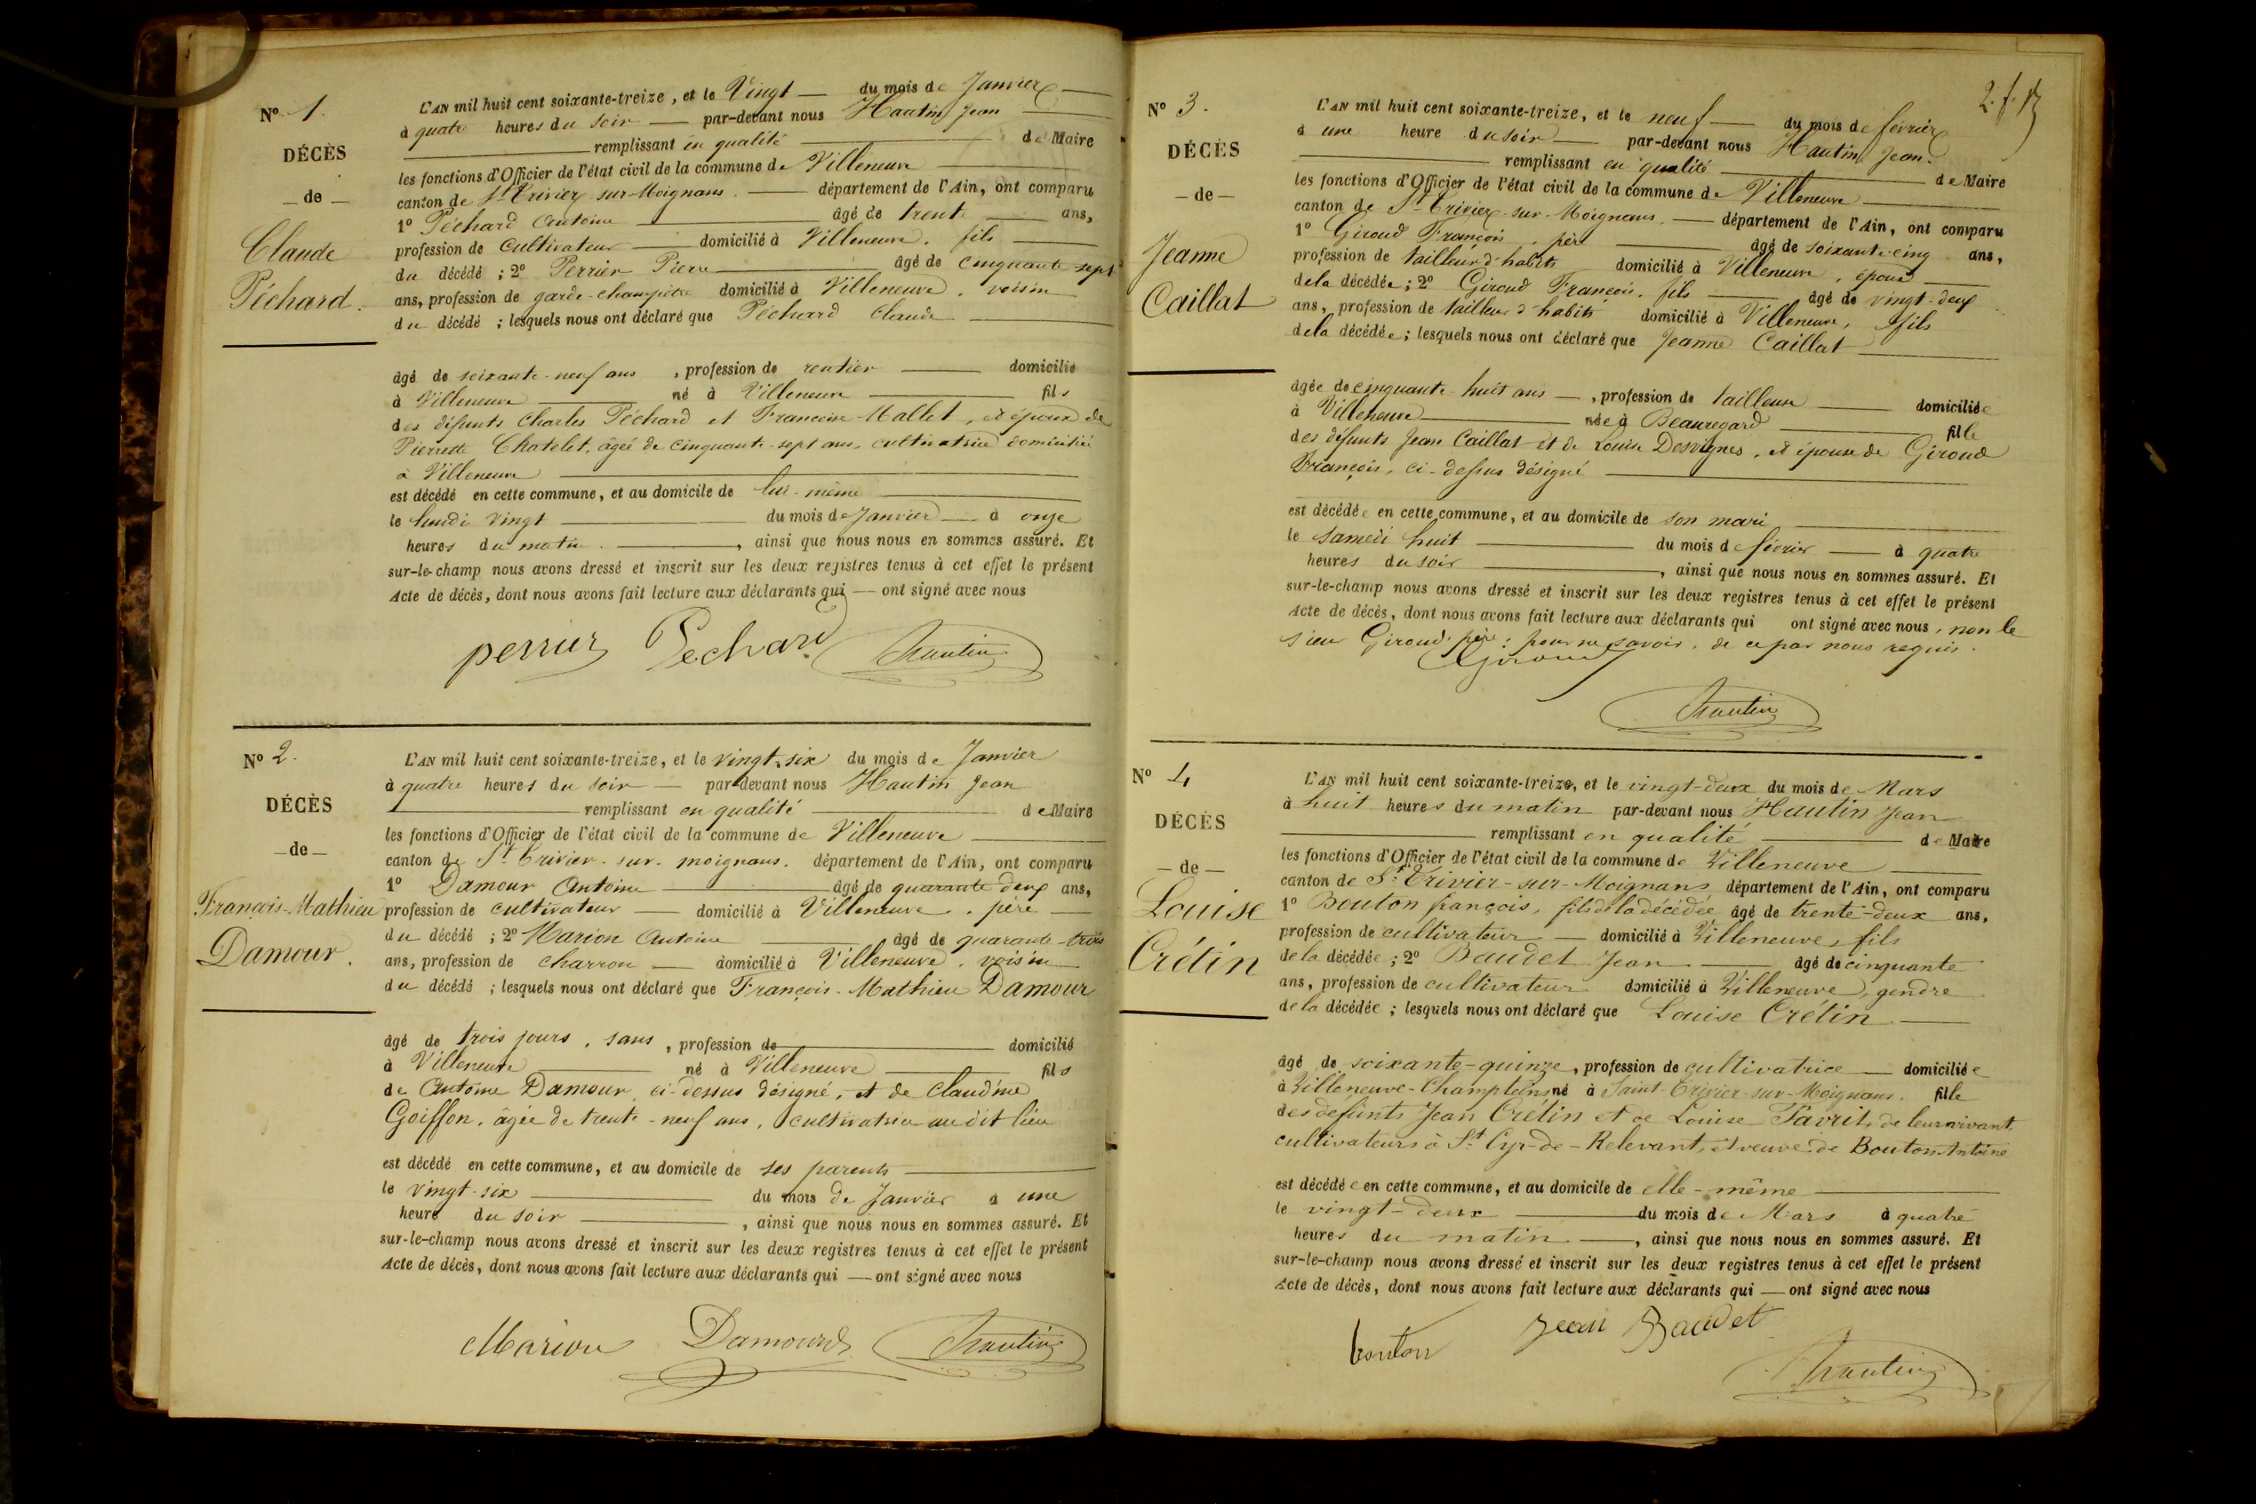 N° 1.
DÉCÈS
— de —
Claude
Péchard.
L'AN mil huit cent soixante-treize, et le Vingt du mois de Janvier
à quatre heures du soir par-devant nous Hautin Jean
remplissant en qualité de Maire
les fonctions d'Officier de l'état civil de la commune de Villeneuve
canton de St Trivier-sur-Moignans. département de l'Ain, ont comparu
1° Péchard Antoine âgé de trente ans,
profession de Cultivateur domicilié à Villeneuve. fils
du décédé ; 2° Perrier Pierre âgé de cinquante sept
ans, profession de garde-champêtre domicilié à Villeneuve, voisin
du décédé ; lesquels nous ont déclaré que Péchard Claude
âgé de soixante-neuf ans, profession de rentier domicilié
à Villeneuve né à Villeneuve fils
des défunts Charles Péchard et Francoise Mallet, et époux de
Pierrette Chatelet, âgée de cinquante-sept ans, cultivatrice domiciliée
à Villeneuve
est décédé en cette commune, et au domicile de lui-même
le lundi vingt du mois de Janvier à onze
heures du matin. , ainsi que nous nous en sommes assuré. Et
sur-le-champ nous avons dressé et inscrit sur les deux registres tenus à cet effet le présent
Acte de décès, dont nous avons fait lecture aux déclarants qui — ont signé avec nous
perrier Pechard Hautin
N° 2.
DÉCÈS
— de —
François-Mathieu
Damour.
L'AN mil huit cent soixante-treize, et le vingt-six du mois de Janvier
à quatre heures du soir — par-devant nous Hautin Jean
remplissant en qualité de Maire
les fonctions d'Officier de l'état civil de la commune de Villeneuve
canton de St Trivier-sur-moignans. département de l'Ain, ont comparu
1° Damour Antoine âgé de quarante deux ans,
profession de cultivateur domicilié à Villeneuve, père
du décédé ; 2° Marion Antoine âgé de quarante-trois
ans, profession de charron domicilié à Villeneuve, voisin
du décédé ; lesquels nous ont déclaré que François-Mathieu Damour
âgé de trois jours, sans, profession de domicilié
à Villeneuve né à Villeneuve fils
de Antoine Damour, ci-dessus désigné, et de Claudine
Goiffon, âgée de trente-neuf ans, cultivatrice audit lieu
est décédé en cette commune, et au domicile de ses parents
le vingt-six du mois de Janvier à une
heure du soir , ainsi que nous nous en sommes assuré. Et
sur-le-champ nous avons dressé et inscrit sur les deux registres tenus à cet effet le présent
Acte de décès, dont nous avons fait lecture aux déclarants qui — ont signé avec nous
Marion Damour Hautin
N° 3.
DÉCÈS
— de —
Jeanne
Caillat
L'AN mil huit cent soixante-treize, et le neuf du mois de février
à une heure du soir par-devant nous Hautin Jean.
remplissant en qualité de Maire
les fonctions d'Officier de l'état civil de la commune de Villeneuve
canton de St Trivier-sur-Moignans. département de l'Ain, ont comparu
1° Giroud François, père âgé de soixante-cinq ans,
profession de tailleur d'habits domicilié à Villeneuve, époux
de la décédée ; 2° Giroud François, fils âgé de vingt-deux
ans, profession de tailleur d'habits domicilié à Villeneuve, fils
de la décédée ; lesquels nous ont déclaré que Jeanne Caillat
âgée de cinquante-huit ans, profession de tailleuse domiciliée
à Villeneuve née à Beauregard fille
des défunts Jean Caillat et de Louise Desvignes, et épouse de Giroud
François, ci-dessus désigné
est décédée en cette commune, et au domicile de son mari
le samedi huit du mois de février à quatre
heures du soir , ainsi que nous nous en sommes assuré. Et
sur-le-champ nous avons dressé et inscrit sur les deux registres tenus à cet effet le présent
Acte de décès, dont nous avons fait lecture aux déclarants qui ont signé avec nous, non le
sieur Giroud père, pour ne savoir, de ce par nous requis.
Giroud
Hautin
N° 4
DÉCÈS
— de —
Louise
Crétin
L'AN mil huit cent soixante-treize, et le vingt-deux du mois de Mars
à huit heures du matin par-devant nous Hautin Jean
remplissant en qualité de Maire
les fonctions d'Officier de l'état civil de la commune de Villeneuve
canton de St Trivier-sur-Moignans département de l'Ain, ont comparu
1° Bouton françois, fils de la décédée âgé de trente-deux ans,
profession de cultivateur domicilié à Villeneuve, fils
de la décédée ; 2° Baudet Jean âgé de cinquante
ans, profession de cultivateur domicilié à Villeneuve, gendre
de la décédée ; lesquels nous ont déclaré que Louise Crétin
âgé de soixante-quinze, profession de cultivatrice domiciliée
à Villeneuve-Champteins né à Saint-Trivier-sur-Moignans. fille
des défunts Jean Crétin et de Louise Favrit, de leur vivant
cultivateurs à St Cyr-de-Relevant, et veuve de Bouton Antoine
est décédée en cette commune, et au domicile de elle-même
le vingt-deux du mois de Mars à quatre
heures du matin , ainsi que nous nous en sommes assuré. Et
sur-le-champ nous avons dressé et inscrit sur les deux registres tenus à cet effet le présent
Acte de décès, dont nous avons fait lecture aux déclarants qui — ont signé avec nous
bouton Jean Baudet
Hautin